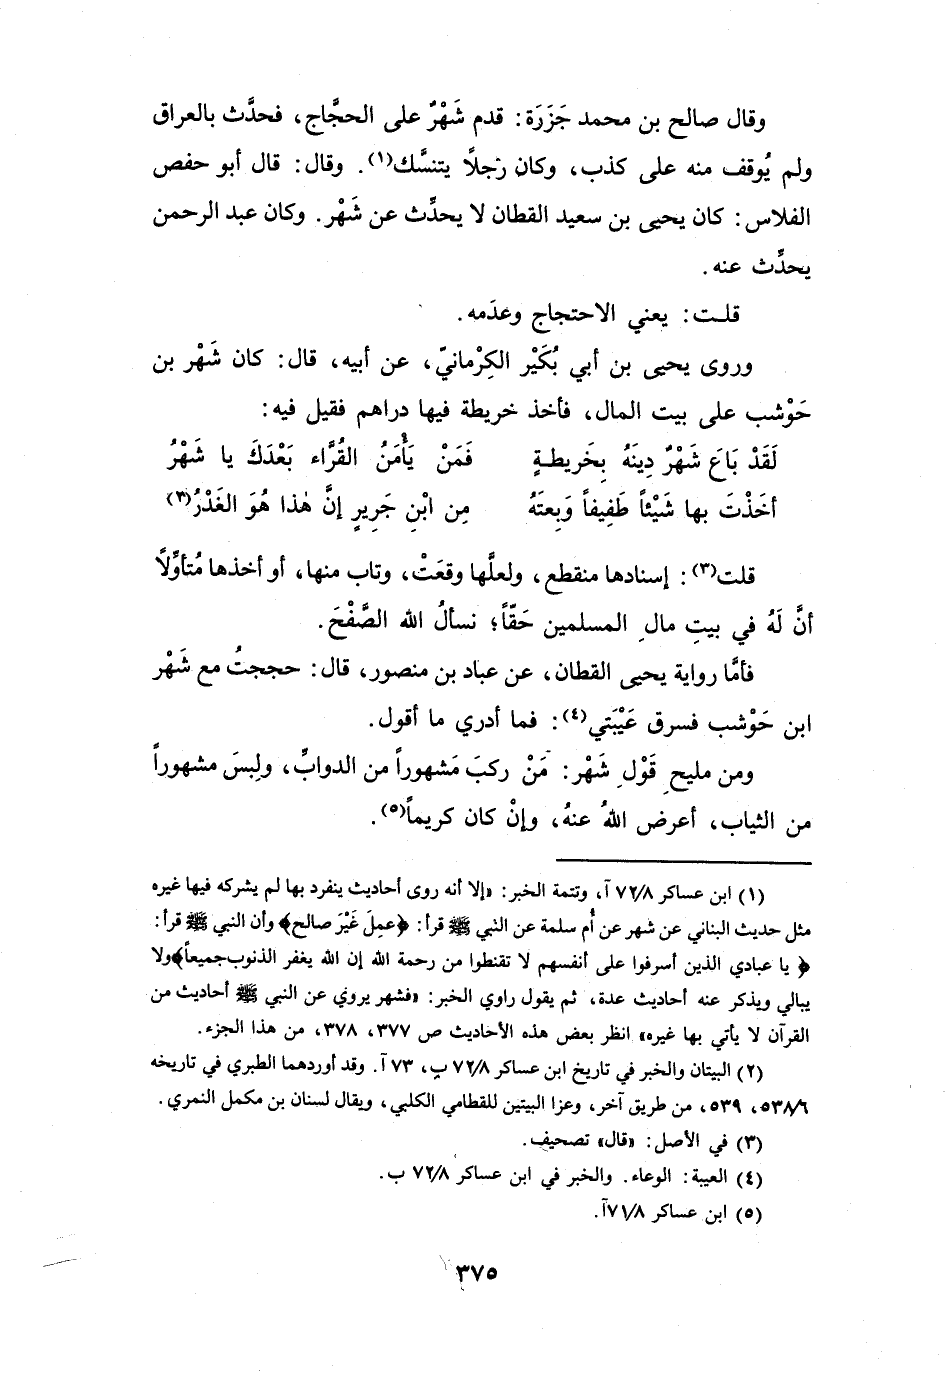 وقال صالح بن محمد جَزَرَة: قدم شَهْرٌ على الحجَّاج، فحدَّث بالعراق
ولم يُوقف منه على كذب، وكان رَجلاً يتنسَّك(١). وقال: قال أبو حفص
الفلاس: كان يحيى بن سعيد القطان لا يحدِّث عن شَهْر. وكان عبد الرحمن
يحدِّث عنه.
قلت: يعني الاحتجاج وعدَمه.
وروى يحيى بن أبي بُكَيْر الكِرْمانيّ، عن أبيه، قال: كان شَهْر بن
حَوْشب على بيت المال، فأخذ خريطة فيها دراهم فقيل فيه:
لَقَدْ بَاعَ شَهْرٌ دِينَهُ بِخَريطةٍ فَمَنْ يَأْمَنُ القُرَّاء بَعْدَكَ يا شَهْرُ
أخَذْتَ بها شَيْئاً طَفِيفاً وَبِعتَهُ مِن ابْنِ جَريرٍ إنَّ هٰذا هُوَ الغَدْرُ(٢)
قلت(٣): إسنادها منقطع، ولعلَّها وقعَتْ، وتاب منها، أو أخذها مُتأوِّلاً
أنَّ لَهُ في بيتِ مالِ المسلمين حَقّاً؛ نسألُ الله الصَّفْحَ.
فأمَّا رواية يحيى القطان، عن عباد بن منصور، قال: حججتُ مع شَهْر
ابن حَوْشب فسرق عَيْبَتي(٤): فما أدري ما أقول.
ومن مليحِ قَوْلِ شَهْر: مَنْ ركبَ مَشهوراً من الدوابِّ، ولبِسَ مشهوراً
من الثياب، أعرض اللهُ عنهُ، وإنْ كان كريماً(٥).
(١) ابن عساكر ٧٢/٨ آ، وتتمة الخبر: «إلا أنه روى أحاديث ينفرد بها لم يشركه فيها غيره
مثل حديث البناني عن شهر عن أم سلمة عن النبي ﷺ قرأ: ﴿عمِلَ غَيْرَ صالح﴾ وأن النبي ﷺ قرأ:
﴿يا عبادي الذين أسرفوا على أنفسهم لا تقنطوا من رحمة الله إن الله يغفر الذنوب جميعاً﴾ ولا
يبالي ويذكر عنه أحاديث عدة، ثم يقول راوي الخبر: «فشهر يروي عن النبي ﷺ أحاديث من
القرآن لا يأتي بها غيره» انظر بعض هذه الأحاديث ص ٣٧٧، ٣٧٨، من هذا الجزء.
(٢) البيتان والخبر في تاريخ ابن عساكر ٧٢/٨ ب، ٧٣ آ. وقد أوردهما الطبري في تاريخه
٥٣٨/٦، ٥٣٩، من طريق آخر، وعزا البيتين للقطامي الكلبي، ويقال لسنان بن مكمل النمري.
(٣) في الأصل: «قال» تصحيف.
(٤) العيبة: الوعاء. والخبر في ابن عساكر ٧٢/٨ ب.
(٥) ابن عساكر ٧١/٨آ.
٣٧٥